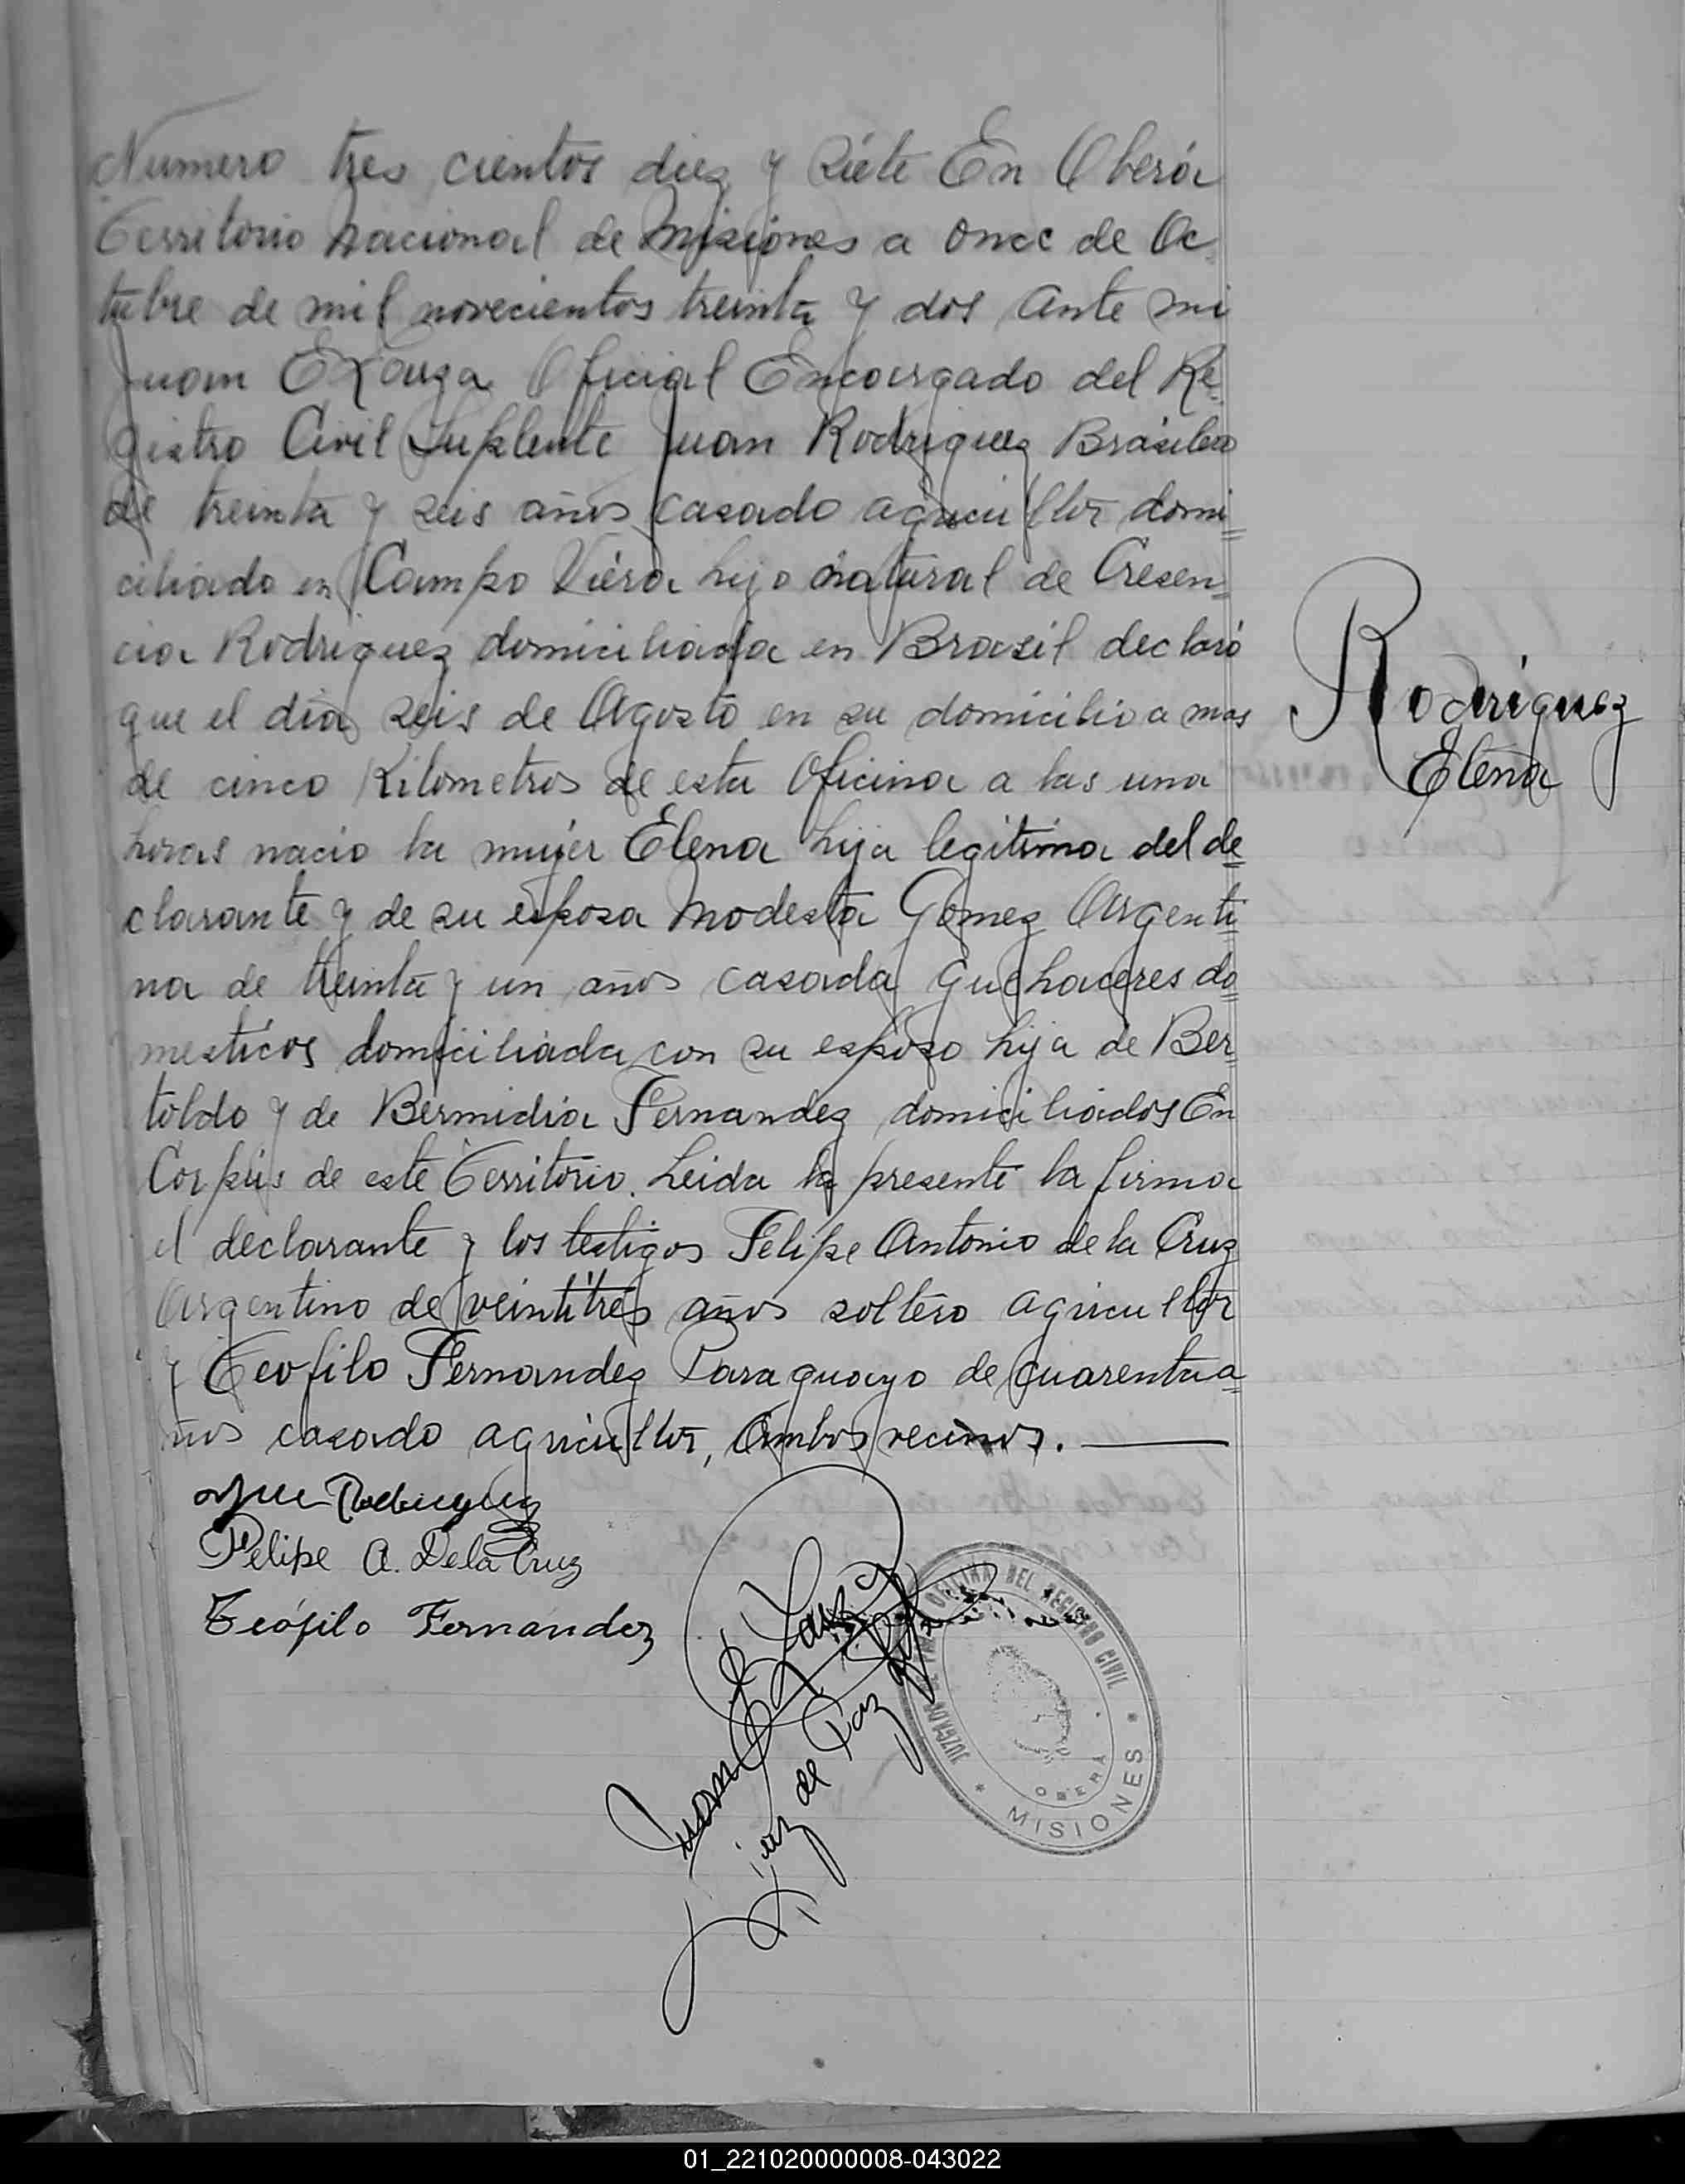 Numero tres cientos diez y siete En Oberá
Territorio Nacional de Misiones a once de Oc
tubre de mil novecientos treinta y dos ante mi
Juan E Oficial Encargado del Re
gistro Civil Suplente Juan Rodriguez Brasilero
de treinta y seis años casado agricultor domi
ciliado en Campo Viera hijo natural de Cresen
cia Rodriguez domiciliada en Brasil declaró
que el dia seis de Agosto en su domicilio a mas
de cinco Kilometros de esta Oficina a las una
horas nacio la mujer Elena hija legitima del de
clarante y de su esposa Modesta Gomez Argenti
na de treinta y un años casada quehaceres do
mesticos domiciliada con su esposo hija de Ber
toldo y de Bermidia Fernandez domiciliados En
Corpús de este Territorio. Leida la presente la firma
el declarante y los testigos Felipe Antonio de la Cruz
Argentino de veintitrés años soltero agricultor
y Teofilo Fernandez Paraguayo de cuarenta a
ños casado agricultor, Ambos vecinos.
Rodriguez
Elena
Rodriguez
Felipe A. De la Cruz
Teófilo Fernández
Juan E
Juez de Paz
JUZGADO DE PAZ OFICINA DEL REGISTRO CIVIL
OBERÁ
* MISIONES *
01_221020000008-043022